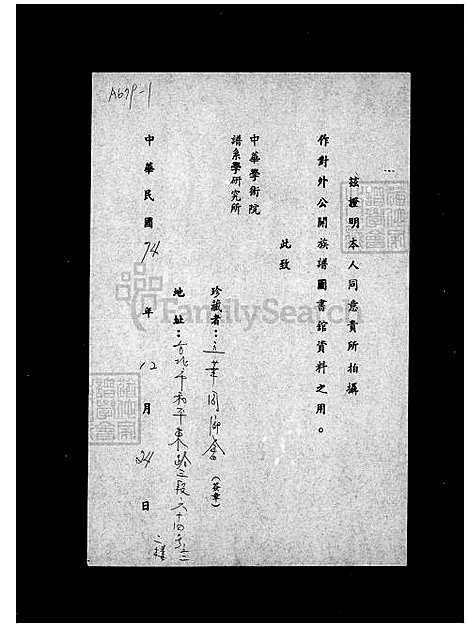 A679-1
茲證明本人同意貴所拍攝
作對外公開族譜圖書館資料之用。
此致
中華學術院
譜系學研究所
珍藏者：同鄉會(簽章)
地址：台北市和平東路三段六十四号
二樓
中華民國74年12月24日
FamilySearch